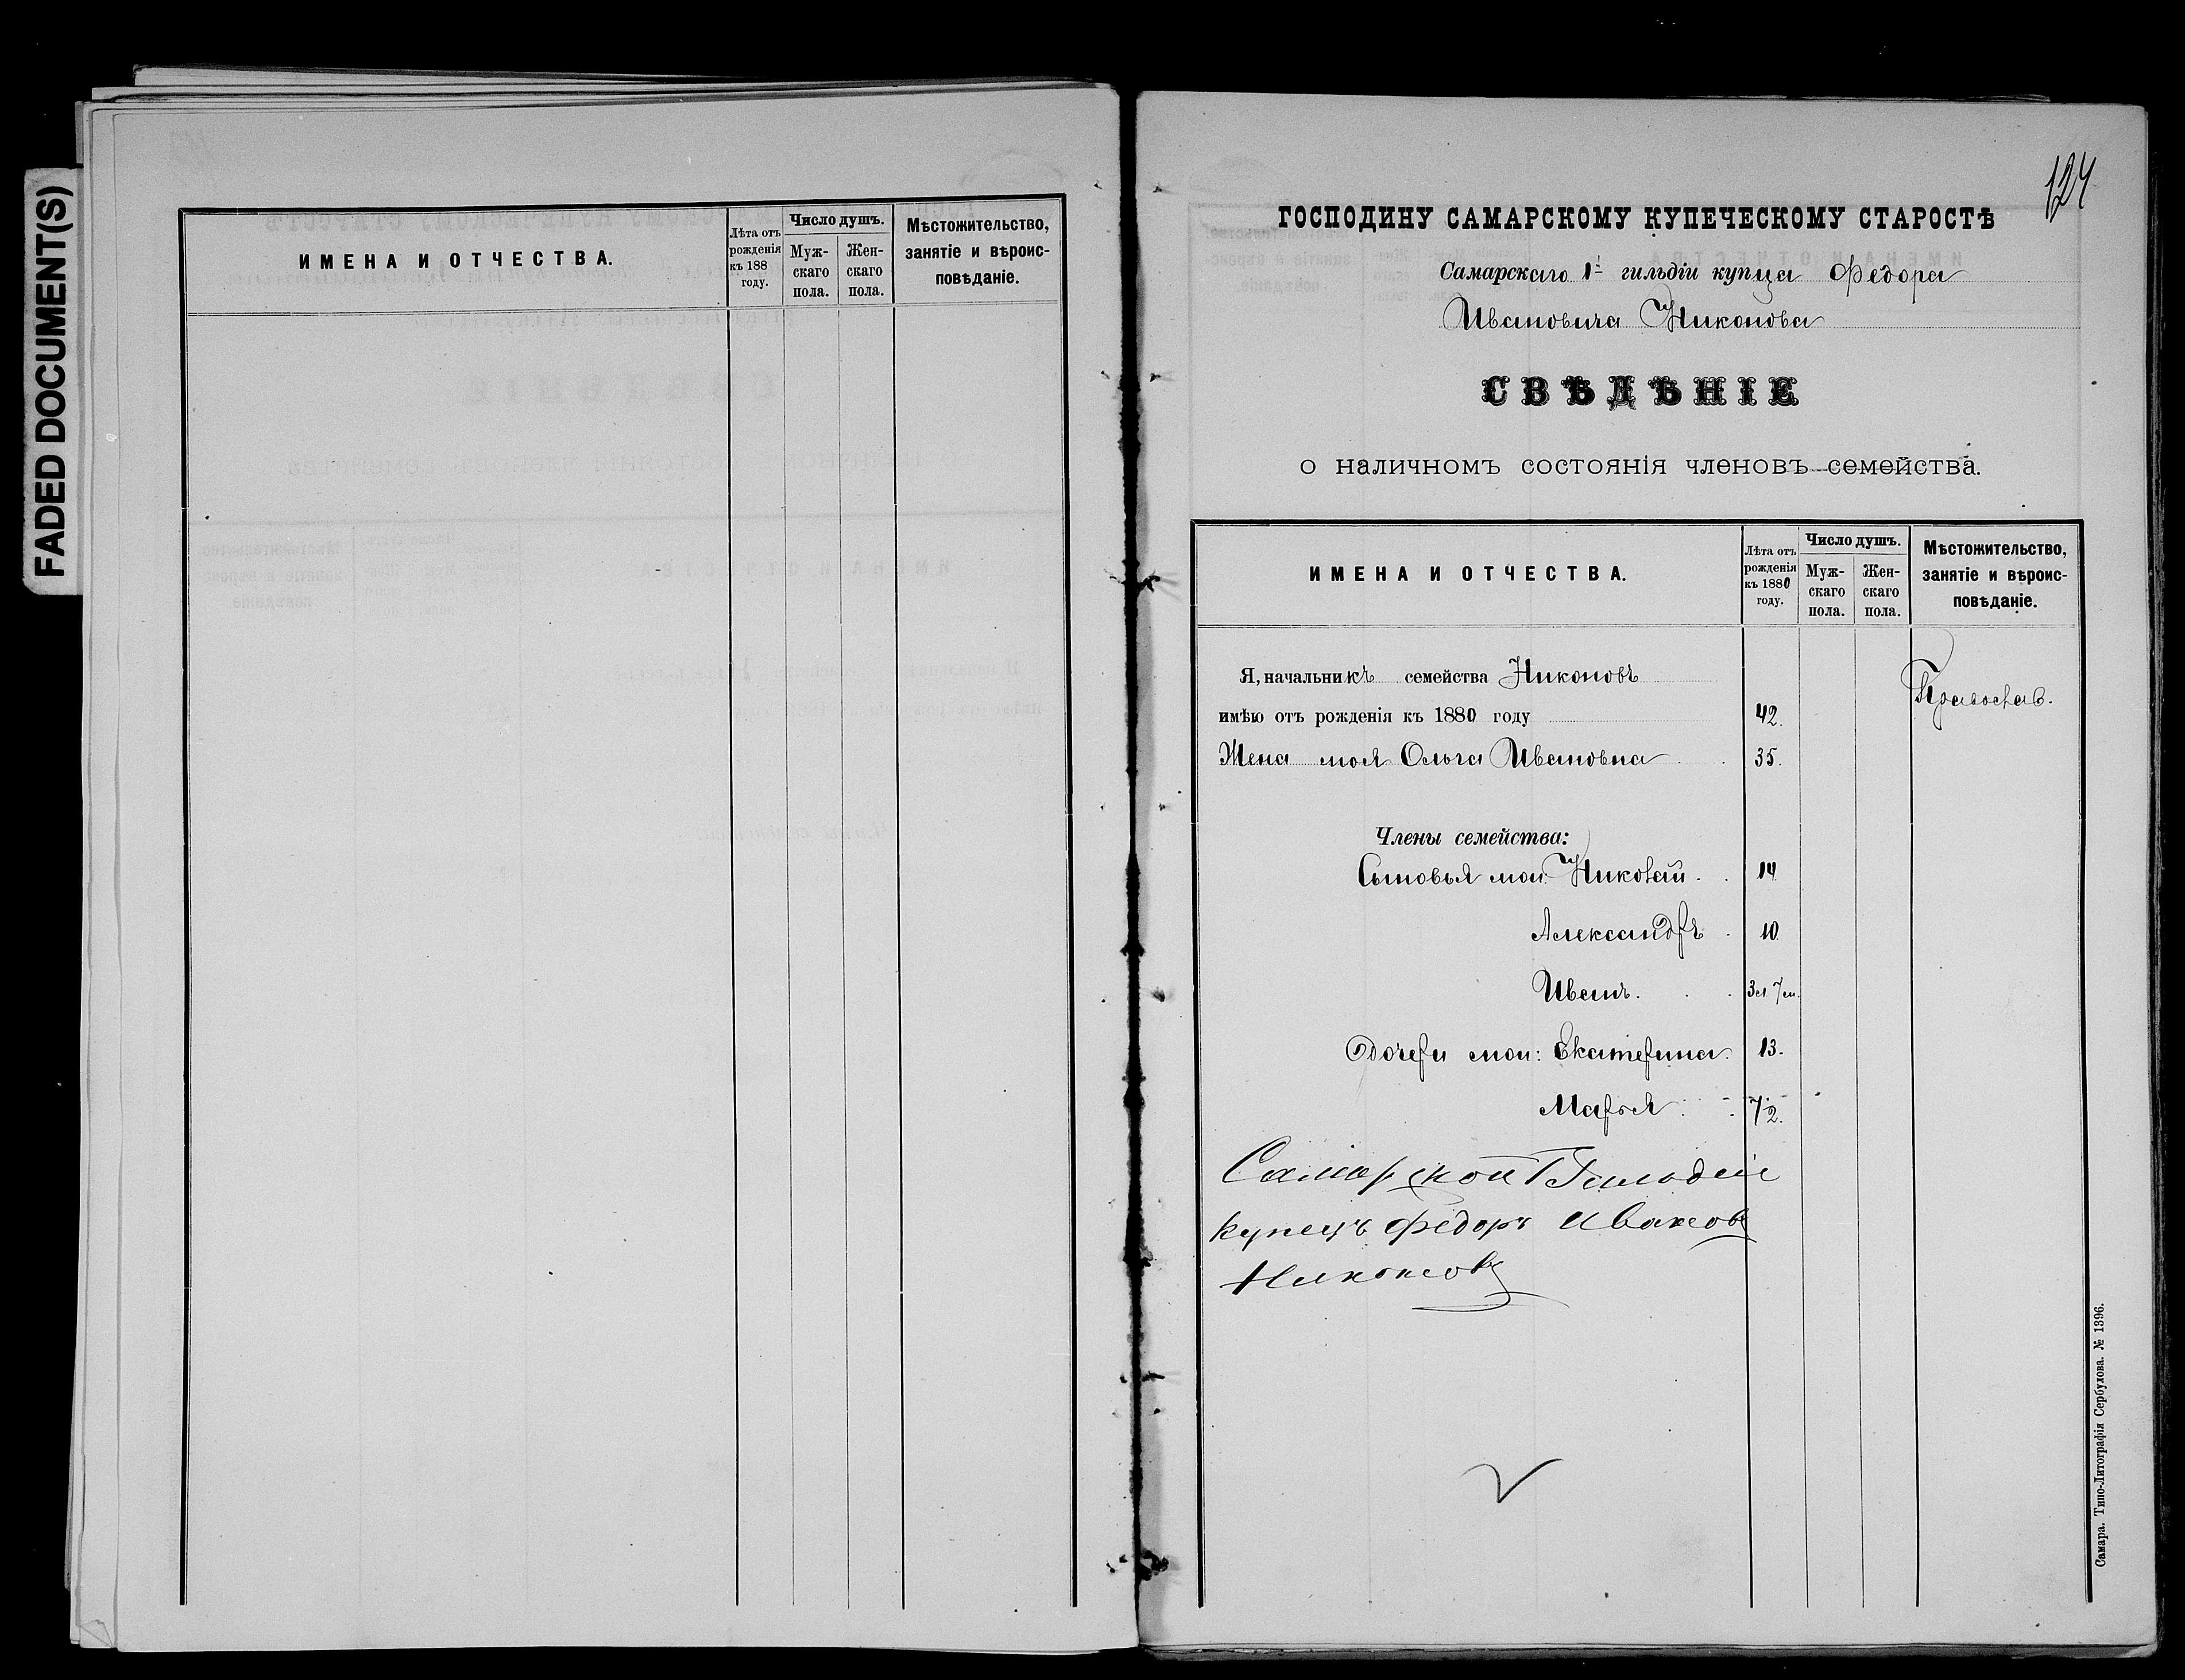 FADED DOCUMENT(S)
ИМЕНА И ОТЧЕСТВА.
Лѣта отъ рожденія къ 188 году.
Число душъ.
Мужскаго пола.
Женскаго пола.
Мѣстожительство, занятіе и вѣроисповѣданіе.
124
ГОСПОДИНУ САМАРСКОМУ КУПЕЧЕСКОМУ СТАРОСТѢ
Самарскаго 1й гильдіи купца Федора
Ивановича Никонова
СВѢДѢНІЕ
о наличномъ состоянія членовъ семейства.
ИМЕНА И ОТЧЕСТВА.
Лѣта отъ рожденія къ 1880 году.
Число душъ.
Мужскаго пола.
Женскаго пола.
Мѣстожительство, занятіе и вѣроисповѣданіе.
Я, начальникъ семейства Никоновъ
Православ.
имѣю отъ рожденія къ 1880 году 42.
Жена моя Ольга Ивановна 35.
Члены семейства:
Сыновья мои: Николай 14
Александръ 10
Иванъ 3л 7м.
Дочери мои: Екатерина 13.
Марья
Самарской Гильдеи
купецъ Федоръ Ивановъ
Никоновъ
Самара. Типо-Литографія Сербулова. № 1396.